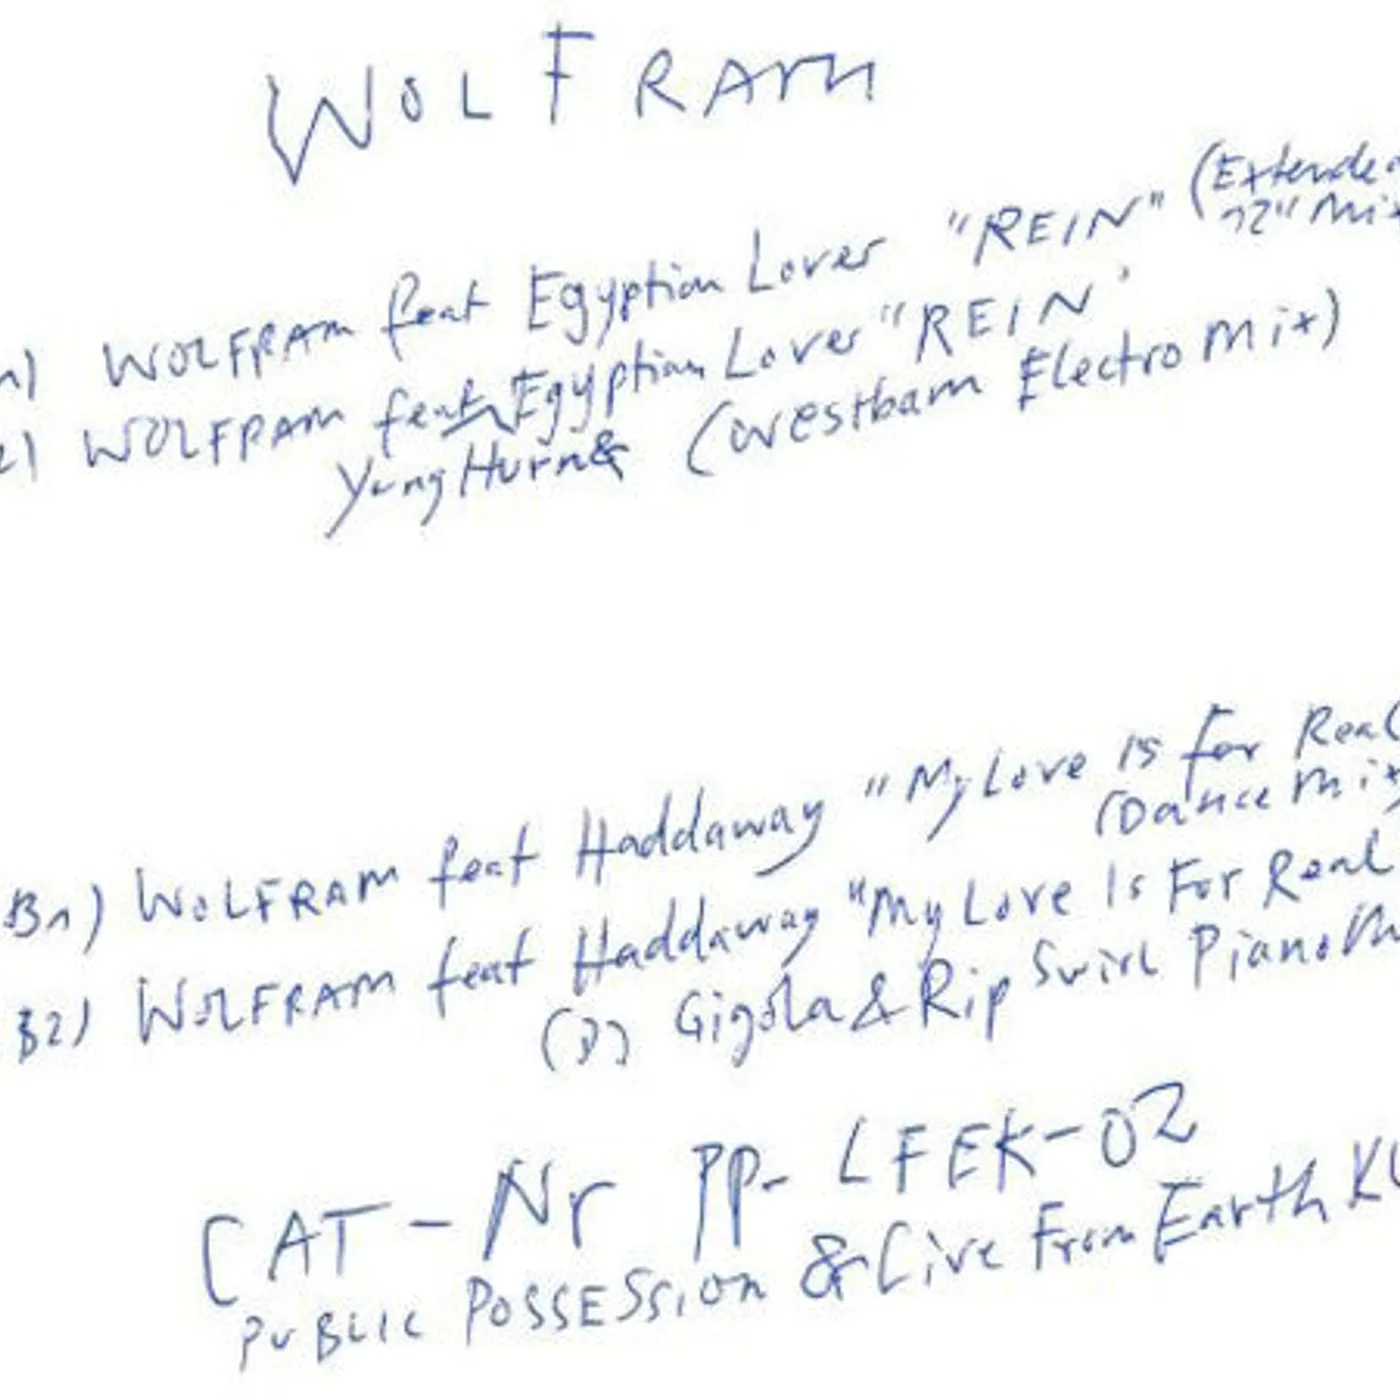 WOLFRAM
1) WOLFRAM feat Egyptian Lover "REIN" (Extended
12" Mix
2) WOLFRAM feat Egyptian Lover "REIN"
Yung Hurn & (Westbam Electro Mix)
B1) WOLFRAM feat Haddaway "My Love Is For Real
(Dance Mix
B2) WOLFRAM feat Haddaway "My Love Is For Real
Gigola & Rip Swirl Piano M
CAT-Nr PP-LFEK-02
PUBLIC POSSESSION & Live From Earth KL